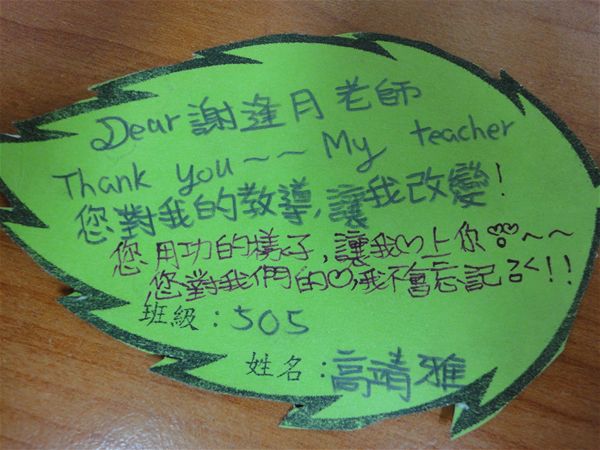 Dear 謝逢月老師
Thank you~~ My teacher
您對我的教導,讓我改變!
您用功的樣子,讓我♡上你♡~~
您對我們的♡,我不會忘記ㄛˇ!!
班級:505
姓名:高靖雅